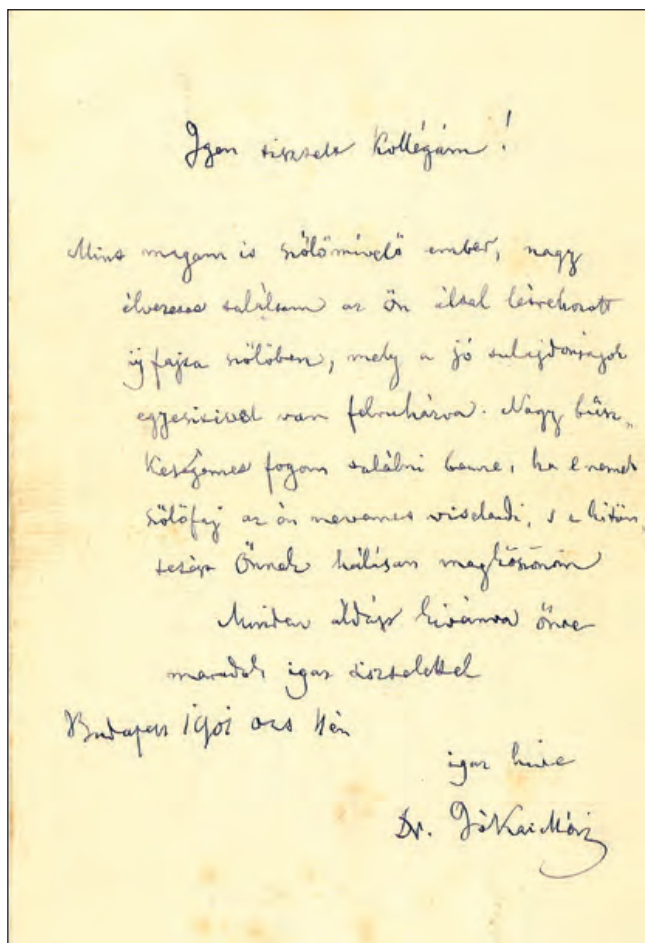 Igen tisztelt Kollégám!
Mint magam is szőlőművelő ember, nagy
élvezetet találtam az Ön által létrehozott
új fajta szőlőben, mely a jó tulajdonságok
egyesítésével van felruházva. Nagy büsz-
keségemet fogom találni benne, ha e nemes
szőlőfaj az én nevemet viselendi, s e kitün-
tetést Önnek hálásan megköszönöm
Minden áldást kivánva Önre
maradok igaz tisztelettel
Budapest 1901
igaz hive
Dr. Jókai Mór